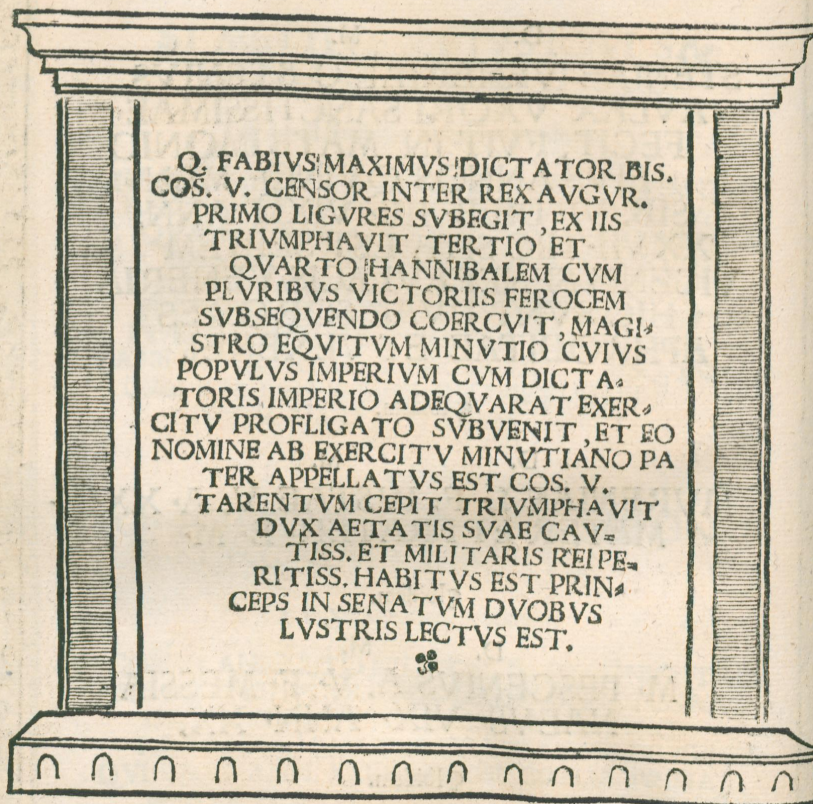 Q. FABIVS MAXIMVS DICTATOR BIS.
COS. V. CENSOR INTER REX AVGVR.
PRIMO LIGVRES SVBEGIT, EX IIS
TRIVMPHAVIT. TERTIO ET
QVARTO HANNIBALEM CVM
PLVRIBVS VICTORIIS FEROCEM
SVBSEQVENDO COERCVIT, MAGI-
STRO EQVITVM MINVTIO CVIVS
POPVLVS IMPERIVM CVM DICTA-
TORIS IMPERIO ADEQVARAT EXER-
CITV PROFLIGATO SVBVENIT, ET EO
NOMINE AB EXERCITV MINVTIANO PA
TER APPELLATVS EST COS. V.
TARENTVM CEPIT TRIVMPHAVIT
DVX AETATIS SVAE CAV-
TISS. ET MILITARIS REI PE-
RITISS. HABITVS EST PRIN-
CEPS IN SENATVM DVOBVS
LVSTRIS LECTVS EST.